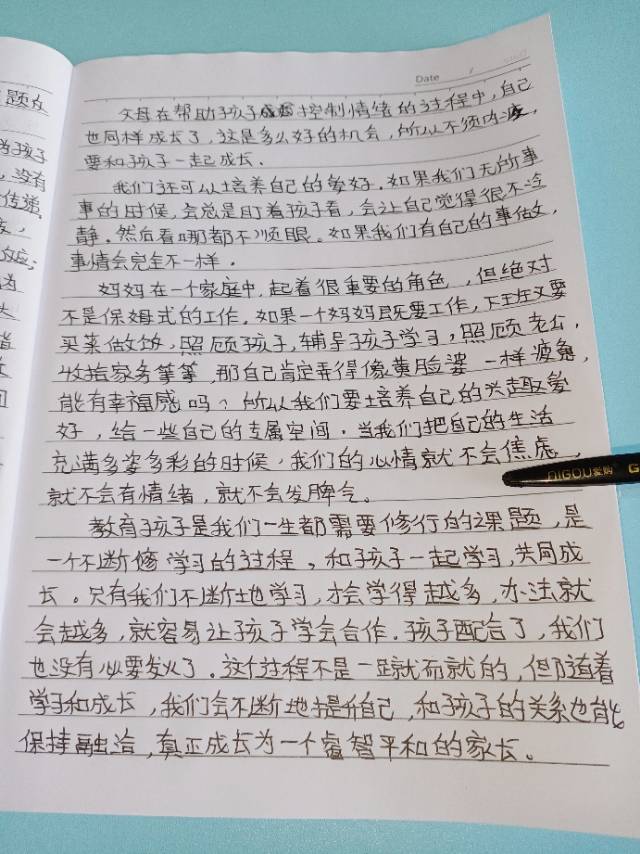 Date
题点
当孩子
没有
传递
父母在帮助孩子控制情绪的过程中,自己
也同样成长了,这是多么好的机会,所以不须内疚,
要和孩子一起成长.
我们还可以培养自己的爱好.如果我们无所事
事的时候,会总是盯着孩子看,会让自己觉得很不冷
静.然后看哪都不顺眼。如果我们有自己的事做,
事情会完全不一样.
妈妈在一个家庭中,起着很重要的角色,但绝对
不是保姆式的工作.如果一个妈妈既要工作,下班又要
买菜做饭,照顾孩子,辅导孩子学习,照顾老公,
收拾家务等等,那自己肯定弄得像黄脸婆一样疲惫,
能有幸福感吗?所以我们要培养自己的兴趣爱
好,给一些自己的专属空间.当我们把自己的生活
充满多姿多彩的时候,我们的心情就不会焦虑,
就不会有情绪,就不会发脾气。
QIGOU爱购 G
教育孩子是我们一生都需要修行的课题,是
一个不断修学习的过程,和孩子一起学习,共同成
长。只有我们不断地学习,才会学得越多,办法就
会越多,就容易让孩子学会合作.孩子配合了,我们
也没有必要发火了.这个过程不是一蹴而就的,但随着
学习和成长,我们会不断地提升自己,和孩子的关系也能
保持融洽,真正成长为一个睿智平和的家长。